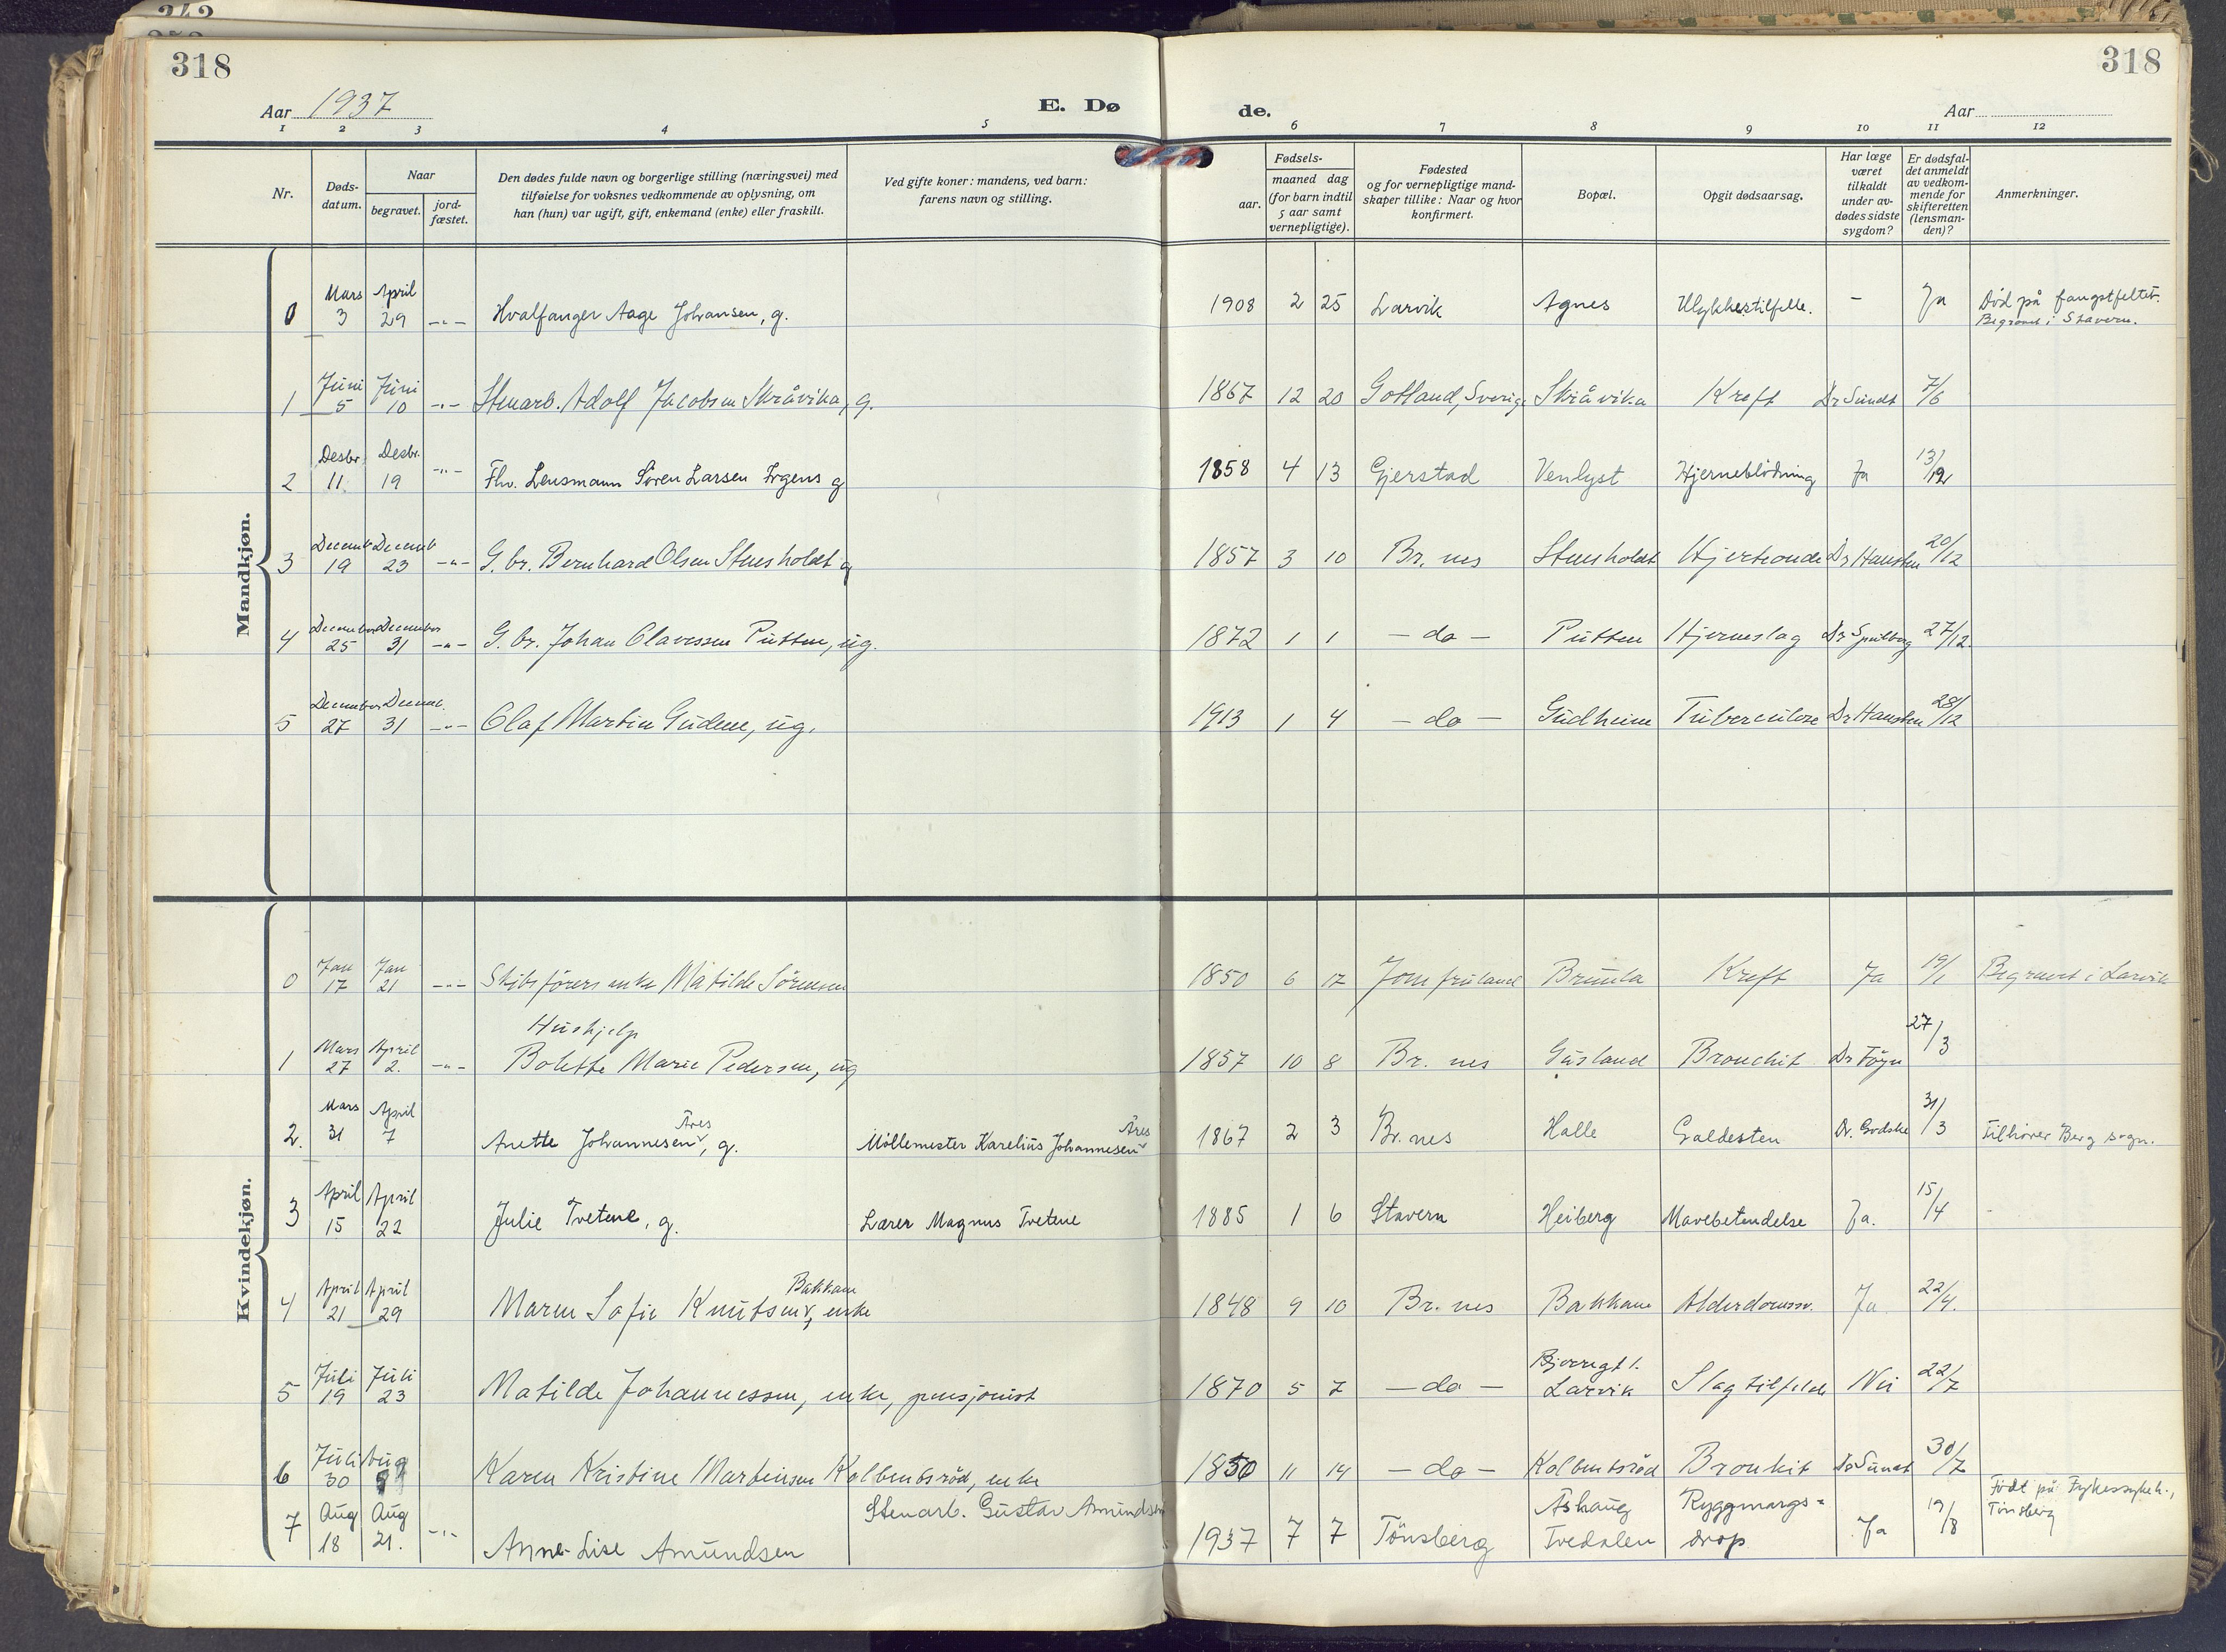 342
318
318
Aar 1937
E. Dø
de.
Aar
1 2 3 4 5 6 7 8 9 10 11 12
Nr.
Døds-
datum.
Naar
begravet.
jord-
fæstet.
Den dødes fulde navn og borgerlige stilling (næringsvei) med
tilføielse for voksnes vedkommende av oplysning, om
han (hun) var ugift, gift, enkemand (enke) eller fraskilt.
Ved gifte koner: mandens, ved barn:
farens navn og stilling.
Fødsels-
aar.
maaned dag
(for barn indtil
5 aar samt
vernepligtige).
Fødested
og for vernepligtige mand-
skaper tillike: Naar og hvor
konfirmert.
Bopæl.
Opgit dødsaarsag.
Har læge
været
tilkaldt
under av-
dødes sidste
sygdom?
Er dødsfal-
det anmeldt
av vedkom-
mende for
skifteretten
(lensman-
den)?
Anmerkninger.
Mandkjøn.
0 Mars 3 April 29 -"- Hvalfanger Aage Johansen, g. 1908 2 25 Larvik Agnes Ulykkestilfelle. - Ja Død på fangstfeltet.
Begravet i Stavern.
1 Juni 5 Juni 10 -"- Stenarb. Adolf Jacobsen Skråvika, g. 1867 12 20 Gotland, Sverige Skråvika Kreft Dr Sundt 7/6
2 Desbr. 11. Desbr. 19 -"- Fhv. Lensmann Sören Larsen Irgens g 1858 4 13 Gjerstad Venlyst Hjerneblödning Ja 13/12
3 Decemb 19 Decemb 23 -"- G. br. Bernhard Olsen Stensholdt g 1857 3 10 Br. nes Stensholdt Hjerteonde Dr Hansten 20/12
4 December 25 December 31 -"- G. br. Johan Olavessen Putten, ug. 1872 1 1 - do - Putten Hjerneslag 27/12.
5 December 27 Decemb. 31 -"- Olaf Martin Gudem, ug. 1913 1 4 - do - Gudheim Tuberculose Dr Hansten 28/12
Kvindekjøn.
0 Jan 17 Jan 21 -"- Skibsförers enke Matilde Sörensen 1850 6 17 Jomfruland Brunla Kreft Ja 19/1 Begravet i Larvik
Hushjelp
1 Mars 27 April 2. -"- Bolette Marie Pedersen, ug 1857 10 8 Br. nes Gusland Bronchit Dr Föyn 27/3
2. Mars 31 April 7 Anette Johannesen Åres, g. Möllemester Karelius Johannesen Åres 1867 2 3 Br. nes Halle Galdesten Dr. Godske 31/3 Tilhörer Berg sogn.
3 April 15 April 22 Julie Tvetene, g. Lærer Magnus Tvetene 1885 1 6 Stavern Heiberg Mavebetendelse Ja. 15/4
4 April 21 April 29 Maren Sofie Knutsen Bakkane, enke 1848 9 10 Br. nes Bakkane Alderdomssv. Ja 22/4.
5 Juli 19 Juli 23 Matilde Johannessen, enke, pensjonist 1870 5 7 - do - Bjerregt 1. Larvik Slagtilfelde Nei 22/7
6 Juli 30 Aug Karen Kristine Martinsen Kolbentsröd, enke 1850 11 14 - do - Kolbentsröd Bronkit Dr Sundt 30/7
7 Aug 18 Aug 21. -"- Anne-Lise Amundsen Stenarb. Gustav Amundsen 1937 7 7 Tönsberg Åshaug Tvedalen Ryggmargs=
drop Ja 19/8 Födt på Fylkessykeh.,
Tönsberg